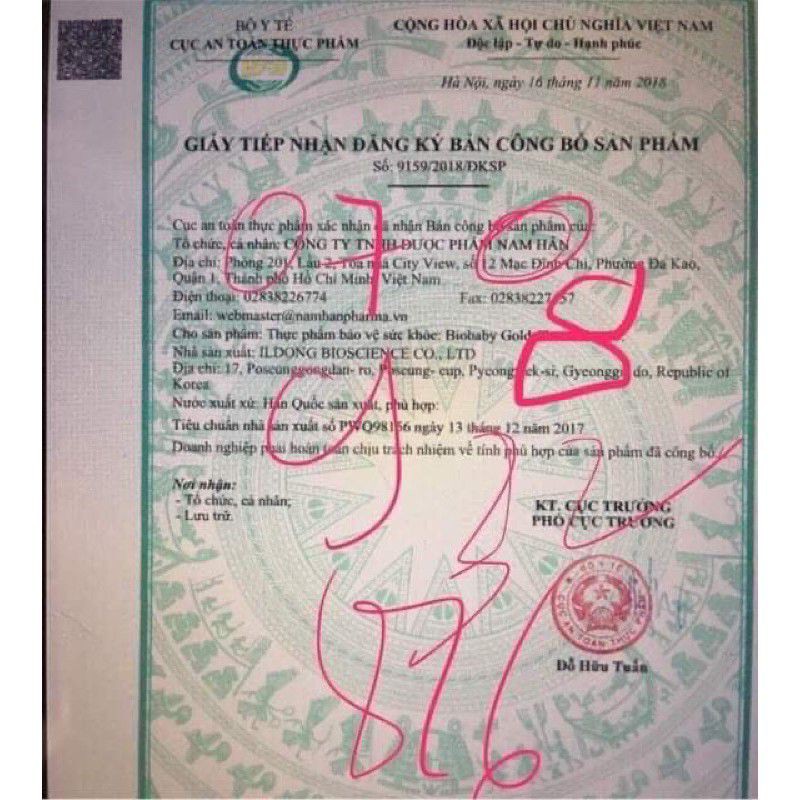 BỘ Y TẾ
CỤC AN TOÀN THỰC PHẨM
CỘNG HÒA XÃ HỘI CHỦ NGHĨA VIỆT NAM
Độc lập - Tự do - Hạnh phúc
Hà Nội, ngày 16 tháng 11 năm 2018
GIẤY TIẾP NHẬN ĐĂNG KÝ BẢN CÔNG BỐ SẢN PHẨM
Số: 9159/2018/ĐKSP
Cục an toàn thực phẩm xác nhận đã nhận Bản công bố sản phẩm của:
Tổ chức, cá nhân: CÔNG TY TNHH DƯỢC PHẨM NAM HÂN
Địa chỉ: Phòng 201, Lầu 2, Tòa nhà City View, số 12 Mạc Đĩnh Chi, Phường Đa Kao,
Quận 1, Thành phố Hồ Chí Minh, Việt Nam
Điện thoại: 02838226774 Fax:
Email: webmaster@namhanpharma.vn
Cho sản phẩm: Thực phẩm bảo vệ sức khỏe: Biobaby Gold
Nhà sản xuất: ILDONG BIOSCIENCE CO., LTD
Địa chỉ: 17, Poseunggongdan- ro, Poseung- eup, Gyeonggi do, Republic of
Korea
Nước xuất xứ: Hàn Quốc sản xuất, phù hợp:
Tiêu chuẩn nhà sản xuất số PWQ98156 ngày 13 tháng 12 năm 2017
Doanh nghiệp phải hoàn toàn chịu trách nhiệm về tính phù hợp của sản phẩm đã công bố./.
Nơi nhận:
- Tổ chức, cá nhân;
- Lưu trữ.
KT. CỤC TRƯỞNG
PHÓ CỤC TRƯỞNG
BỘ Y TẾ
CỤC AN TOÀN THỰC PHẨM
Đỗ Hữu Tuấn
07 8
9 32
876